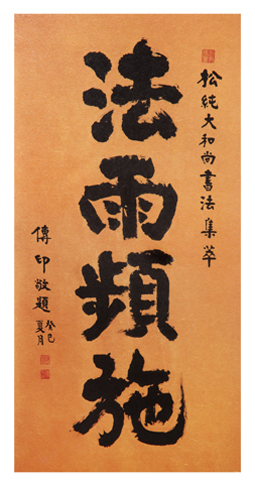 松純大和尚書法集萃
法雨頻施
傳印敬題
癸巳夏月